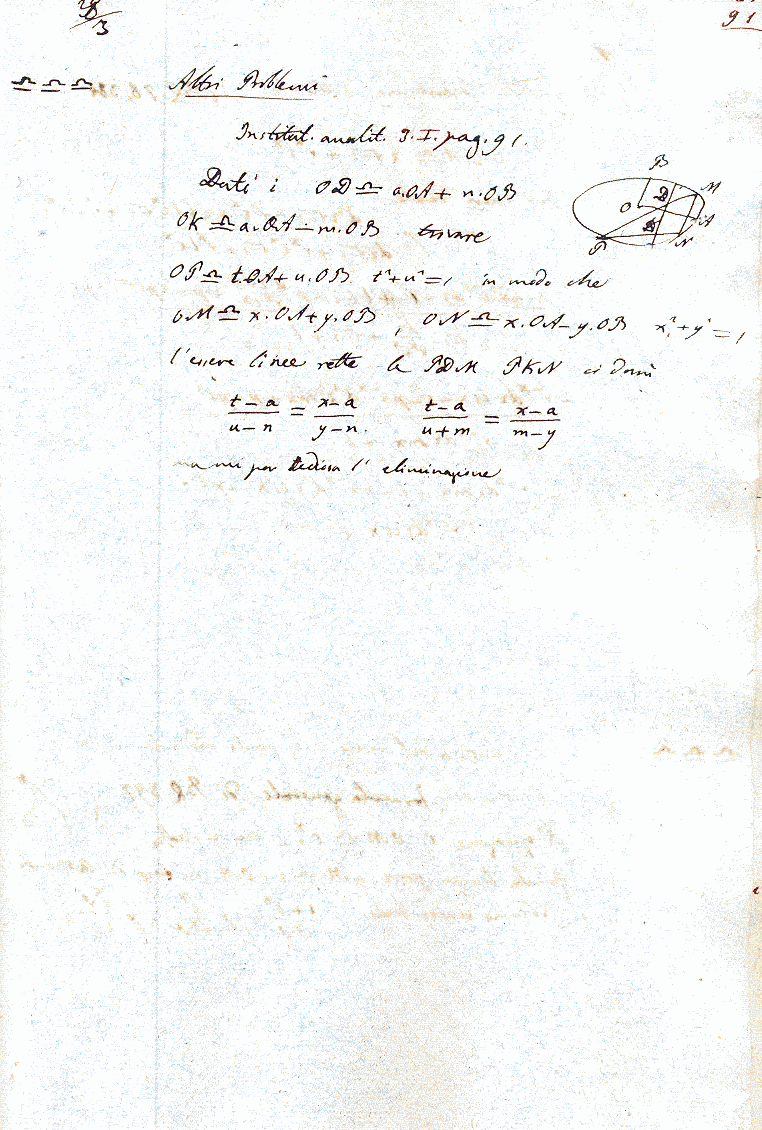 28/3
91
≏ ≏ ≏ Altri Problemi
Institut. analit. T. I. pag. 91.
Dati i OD ≏ a.OA + n.OB
OK ≏ a.OA − m.OB trovare
OP ≏ t.OA + u.OB t² + u² = 1 in modo che
OM ≏ x.OA + y.OB , ON ≏ x.OA − y.OB x² + y² = 1
l'essere linee rette le PDM PKN ci danno
(t − a)/(u − n) = (x − a)/(y − n). (t − a)/(u + m) = (x − a)/(m − y)
ma mi par tediosa l' eliminazione
B
M
D
O
A
N
P